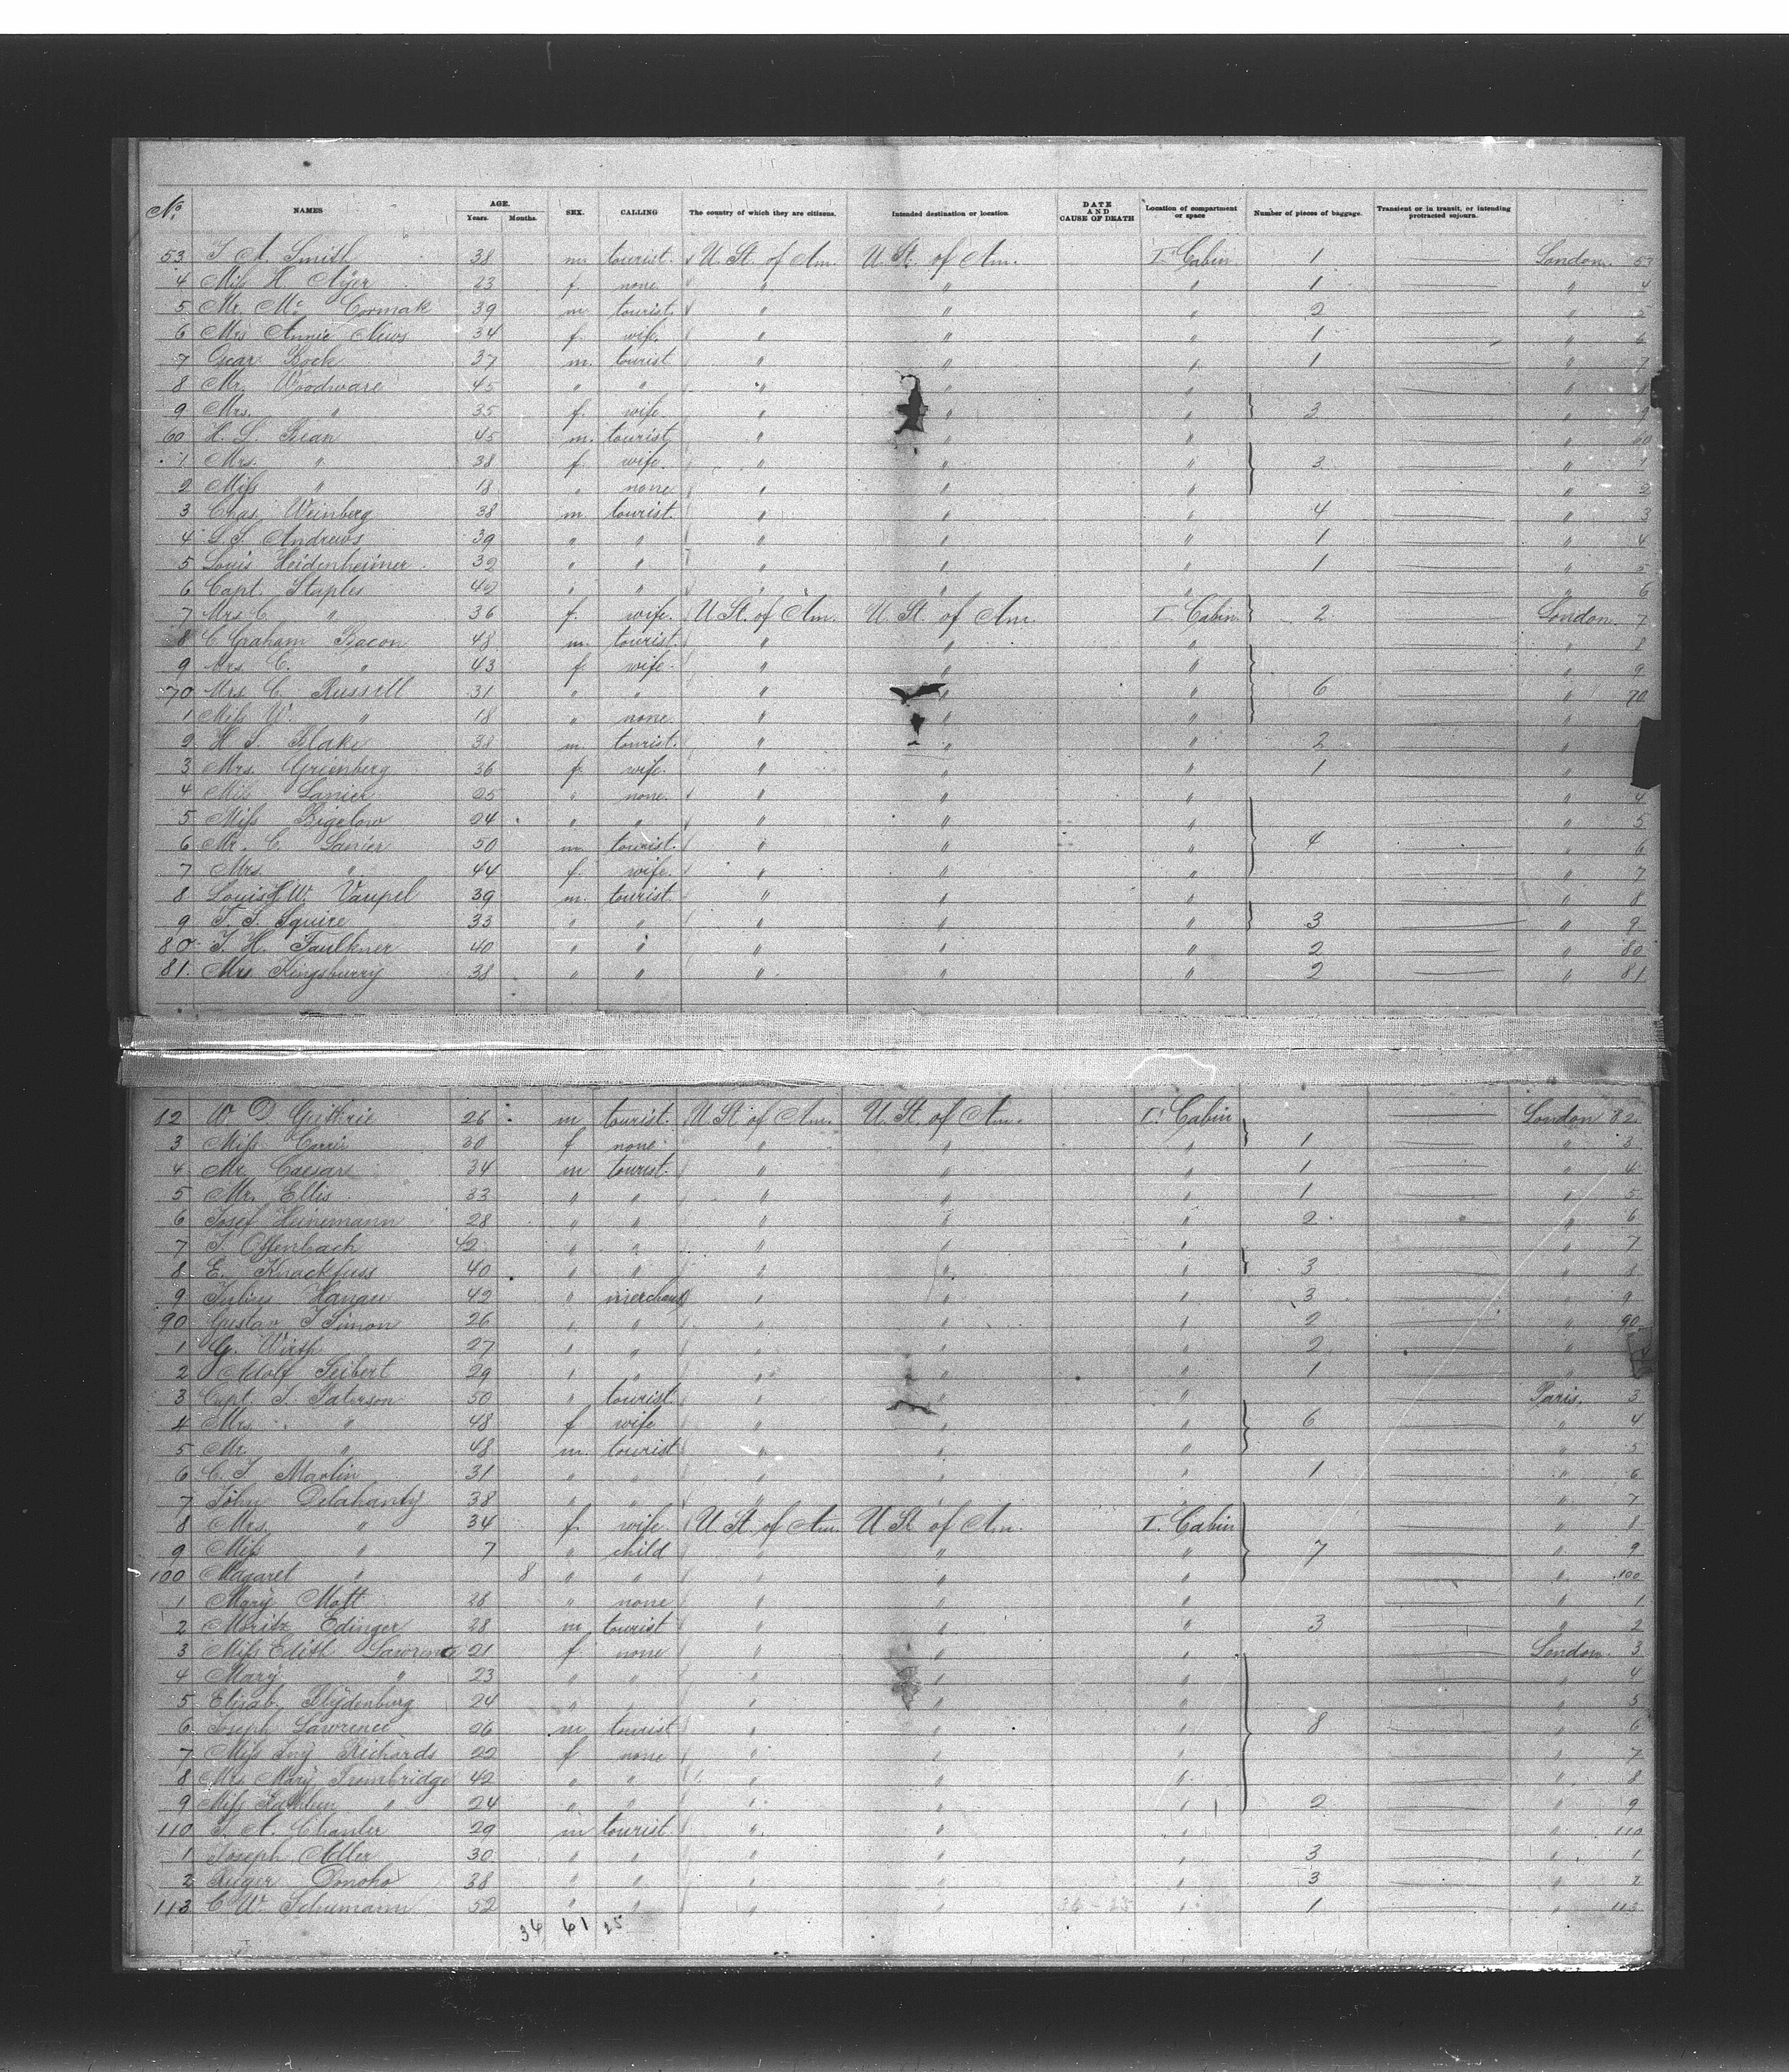 No. NAMES AGE. Years. Months. SEX. CALLING The country of which they are citizens. Intended destination or location. DATE AND CAUSE OF DEATH Location of compartment or space Number of pieces of baggage. Transient or in transit, or intending protracted sojourn.
53 J. A. Smith 38 m. tourist. U. St. of Am. U. St. of Am. I. Cabin 1 London. 53
4 Miss H. Ayer 23 f. none " " " 1 " 4
5 Mr. Mc. Cormak 39 m. tourist. " " " 2 " 5
6 Mrs Annie News 34 f. wife. " " " 1 " 6
7 Oscar Bock 37 m. tourist " " " 1 " 7
8 Mr. Woodware 45 " " " " " "
9 Mrs. " 35 f. wife " " " 3 " 9
60 H. L. Bean 45 m. tourist " " " " 60
1 Mrs. " 38 f. wife. " " " 3 " 1
2 Miss " 18 " none " " " " 2
3 Chas. Weinberg 38 m. tourist. " " " 4 " 3
4 L. S. Andrews 39 " " " " " 1 " 4
5 Louis Heidenheimer 32 " " " " " 1 " 5
6 Capt. Staples 42 " " " " " " 6
7 Mrs C. " 36 f. wife. U. St. of Am. U. St. of Am. I. Cabin 2 London. 7
8 C. Graham Bacon 48 m. tourist. " " " " 8
9 Mrs. C. " 43 f. wife. " " " " 9
70 Mrs. C. Russell 31 " " " " " 6 " 70
1 Miss W. " 18 " none. " " " "
2 H. S. Blake 38 m. tourist. " " " 2 "
3 Mrs. Greenberg 36 f. wife. " " " 1 "
4 Miss Lanier 25 " none. " " " " 4
5 Miss Bigelow 24 " " " " " " 5
6 Mr. C. Lanier 50 m. tourist. " " " 4 " 6
7 Mrs. " 44 f. wife. " " " " 7
8 Louis H. W. Vaupel 39 m. tourist. " " " " 8
9 T. S. Squire 33 " " " " " 3 " 9
80 J. H. Faulkner 40 " " " " " 2 " 80
81. Mrs Kingsburry 38 " " " " " 2 " 81
82 W. D. Guthrie 26 m tourist. U. St. of Am. U. St. of Am. I. Cabin London 82
3 Miss 30 f none " " " 1 " 3
4 Mr. Caesare 34 m tourist. " " " 1 " 4
5 Mr. Ellis 33 " " " " " 1 " 5
6 Josef Heinemann 28 " " " " " 2 " 6
7 J. Offenbach 42 " " " " " " 7
8 E. Knackfuss 40 " " " " " 3 " 8
9 Julius Hanau 42 " merchant " " " 3 " 9
90 Gustav J. Simon 26 " " " " " 2 " 90
1 G. Wirth 27 " " " " " 2 "
2 Adolf Seibert 29 " " " " " 1 "
3 Capt. J. Paterson 50 " tourist. " " " Paris. 3
4 Mrs. " 48 f wife " " " 6 " 4
5 Mr. " 48 m. tourist " " " " 5
6 C. J. Martin 31 " " " " " 1 " 6
7 John Delahanty 38 " " " " " " 7
8 Mrs. " 34 f. wife. U. St. of Am. U. St. of Am. I. Cabin " 8
9 Miss " 7 " child " " " 7 " 9
100 Magaret " 8 " " " " " " 100
1 Mary Mott 28 " none " " " " 1
2 Moritz Edinger 28 m tourist " " " 3 " 2
3 Miss Edith Lawrence 21 f none " " " London. 3
4 Mary " 23 " " " " " " 4
5 Elisab. Blydenburg 24 " " " " " " 5
6 Joseph Lawrence 26 m tourist " " " 8 " 6
7 Miss Richards 22 f none " " " " 7
8 Mrs. Mary Trombridge 42 " " " " " " 8
9 Miss " 24 " " " " " 2 " 9
110 A. Chanler 29 m tourist " " " " 110
1 Joseph Adler 30 " " " " " 3 " 1
2 Ruger Donoho 38 " " " " " 3 " 2
113 C. W. Schumann 52 " " " " 36-25 " 1 " 113
36 61 25